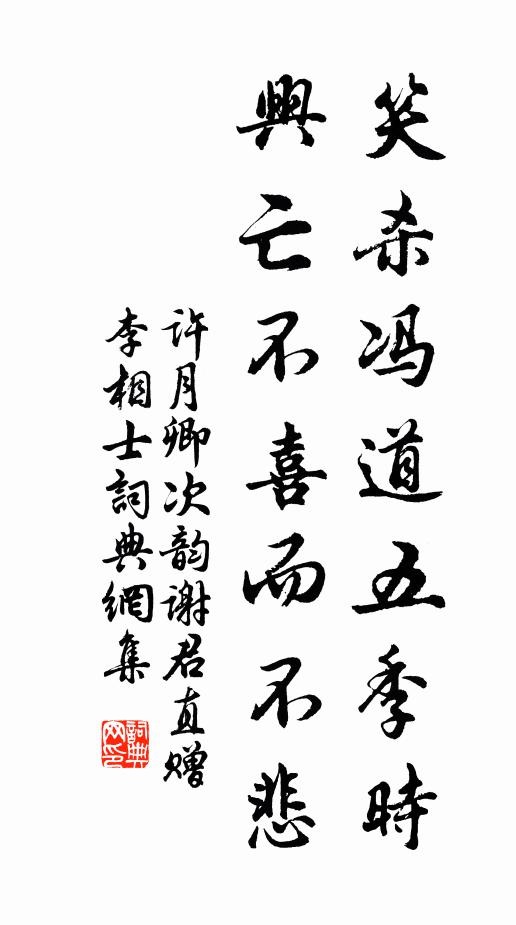 笑杀冯道五季時
興亡不喜而不悲
许月卿次韵谢君直赠
李相士詞典網集
詞典